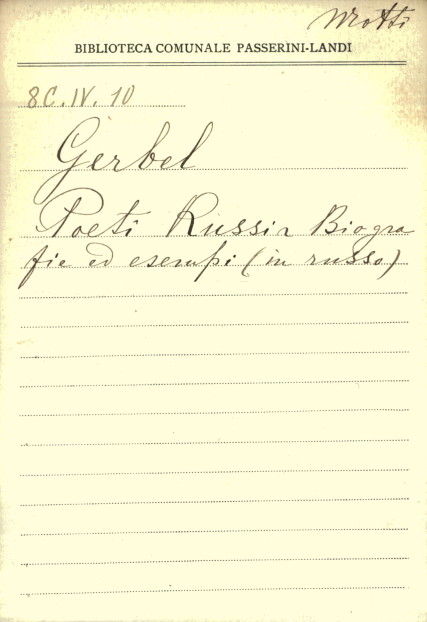 Motti
BIBLIOTECA COMUNALE PASSERINI-LANDI
8C.IV.10
Gerbel
Poeti Russia Biogra
fie ed esempi (in russo)